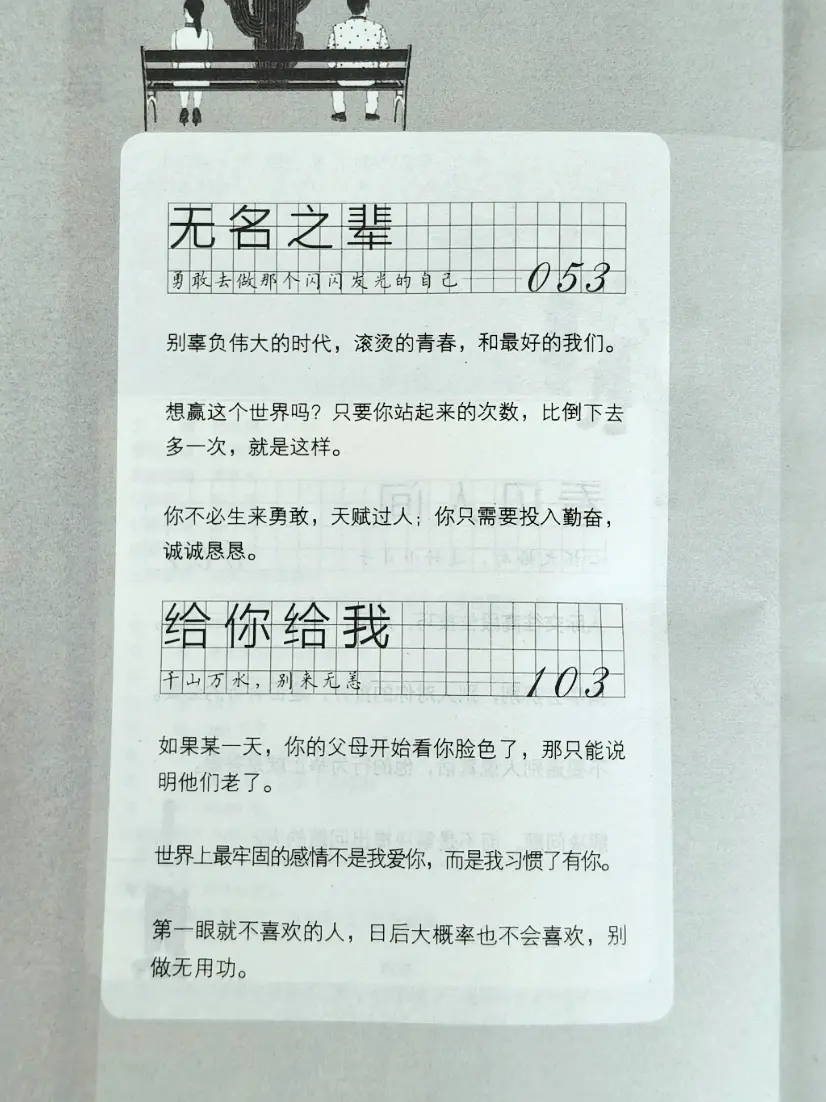 无名之辈
勇敢去做那个闪闪发光的自己
053
别辜负伟大的时代，滚烫的青春，和最好的我们。
想赢这个世界吗？只要你站起来的次数，比倒下去
多一次，就是这样。
你不必生来勇敢，天赋过人；你只需要投入勤奋，
诚诚恳恳。
给你给我
千山万水，别来无恙
103
如果某一天，你的父母开始看你脸色了，那只能说
明他们老了。
世界上最牢固的感情不是我爱你，而是我习惯了有你。
第一眼就不喜欢的人，日后大概率也不会喜欢，别
做无用功。